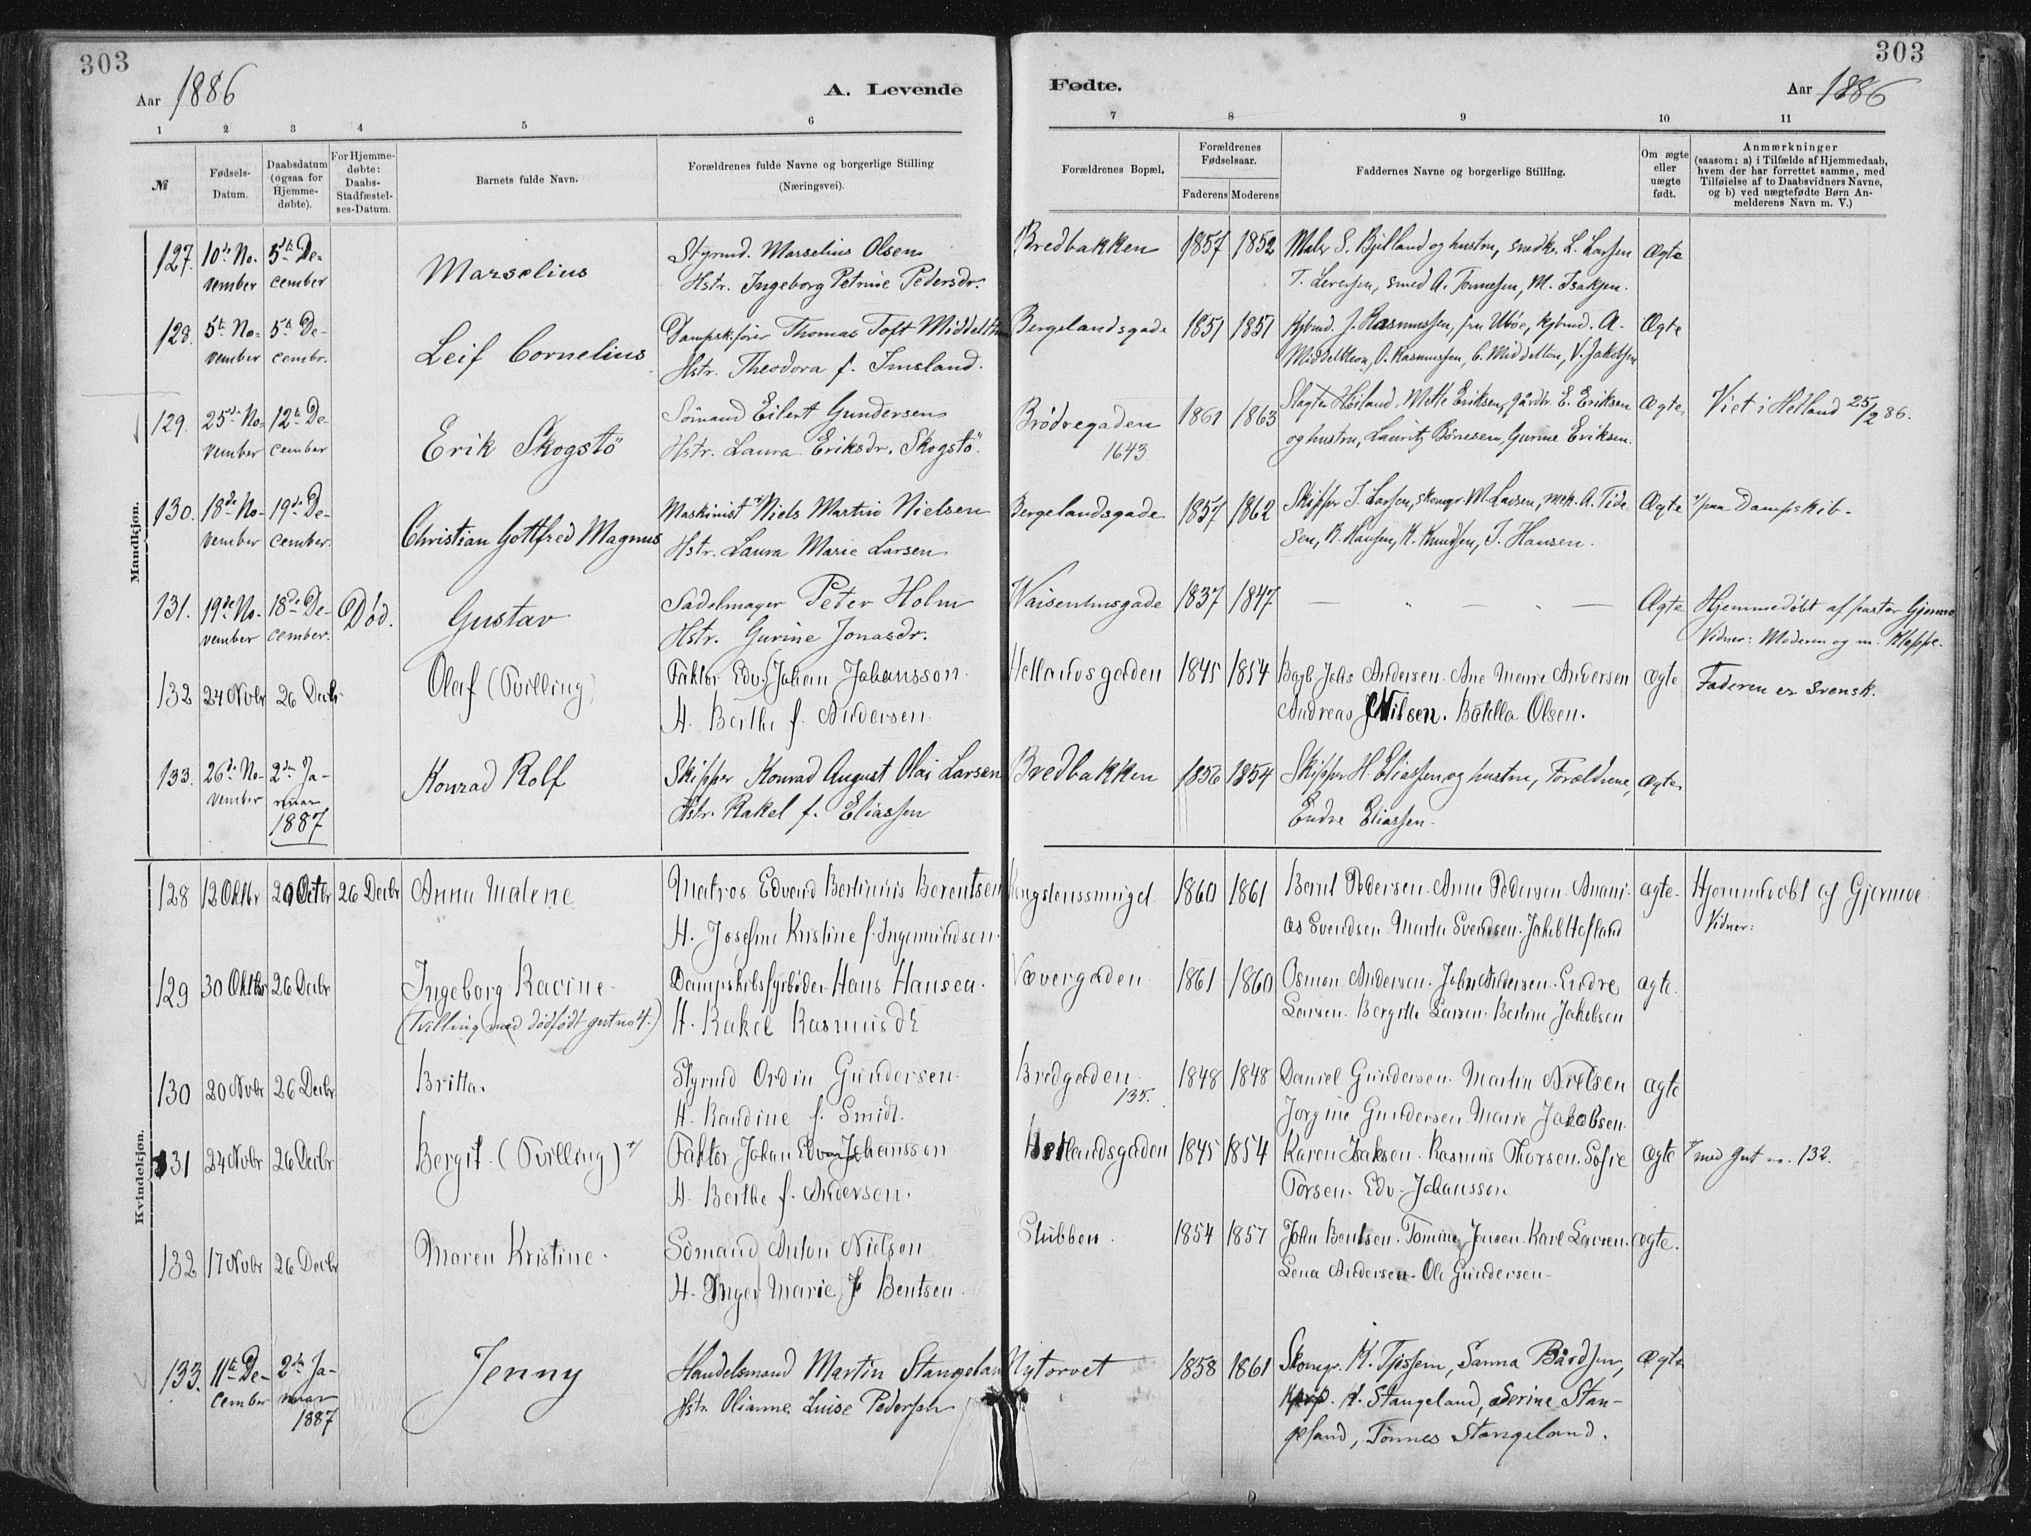 303
303
Aar 1886
A. Levende
Fødte.
Aar 1886
1 2 3 4 5 6 7 8 9 10 11
№
Fødsels-Datum.
Daabsdatum (ogsaa for Hjemmedøbte).
For Hjemmedøbte: Daabs-Stadfæstelses-Datum.
Barnets fulde Navn.
Forældrenes fulde Navne og borgerlige Stilling (Næringsvei).
Forældrenes Bopæl.
Forældrenes Fødselsaar.
Faderens Moderens
Faddernes Navne og borgerlige Stilling.
Om ægte eller uægte født.
Anmærkninger (saasom: a) i Tilfælde af Hjemmedaab, hvem der har forrettet samme, med Tilføielse af to Daabsvidners Navne, og b) ved uægtefødte Børn Anmelderens Navn m. V.)
Mandkjøn.
127. 10de No- 5te De- Styrmd. Marselius Olsen Bredbakken 1857 1852 Maler S. Bjelland og hustru, snedkr. L. Larsen Ægte
vember cember Marselius Hstr. Ingeborg Petrine Pedersdr. T. Leversen, smed A. Tønnesen, M. Isaksen.
128. 5te No- 5te De- Dampsk.fører Thomas Toft Middelthon Bergelandsgade 1851 1851 Kjbmd. J. Rasmussen, fru Ubøe, kjbmd. A. Ægte
vember cembr. Leif Cornelius Hstr. Theodora f. Imsland. Middelthon, O. Rasmussen, C. Middelton, V. Jakobsen
129. 25de No- 12te De- Sømand Eilert Gundersen Brødregaden 1861 1863 Slagter Høiland, Mette Eriksen, gårdbr. E. Eriksen Ægte Viet i Hetland 25/2 86.
vember cember Erik Skogstö Hstr. Laura Eriksdr. Skogstö. 1643 og hustru, Lauritz Börresen, Gurine Eriksen.
130. 18de No- 19de De- Maskinist Niels Martin Nielsen Bergelandsgade 1857 1862 Skipper T. Larsen, skomgr. M. Larsen, mek. A. Tide- Ægte paa Dampskib.
vember cember. Christian Gottfred Magnus Hstr. Laura Marie Larsen sen, R. Hansen, K. Knudsen, J. Hansen.
131. 19de No- 18de De- Død. Gustav Sadelmager Peter Holm Waisenhusgade 1837 1847 — " — " — Ægte Hjemmedöbt af pastor Gjerme
vember cember. Hstr. Gurine Jonasdr. Vidner: Moderen og m. Kloppe.
132 24 Novbr 26 Decbr Olaf (Tvilling) Faktor Edv. Johan Johansson. Hetlandsgaden 1845 1854 Bagb. Johs Andersen. Ane Marie Andersen ægte Faderen er svensk.
H. Berthe f. Andersen. Andreas Nilsen. Botilla Olsen.
133. 26de No- 2den Ja- Konrad Rolf Skipper Konrad August Olai Larsen Bredbakken 1856 1854 Skipper H. Eliassen og hustru, Forældrene, ægte
vember nuar 1887 Hstr. Rakel f. Eliassen Endre Eliassen.
Kvindekjøn.
128 12 Oktbr 29 Octbr 26 Decbr Anna Malene Matros Edvard Bertinius Berentsen Kongstenssmuget 1860 1861 Bernt Pedersen. Anne Pedersen. Anani- ægte. Hjemmedöbt af Gjerme
H. Josefine Kristine f. Ingemundsen. as Svendsen. Marta Svendsen. Jakob Hefland Vidner:
129 30 Oktbr 26 Decbr Ingeborg Racine. Dampskibsfyrböder Hans Hansen. Vævergaden 1861 1860 Osmon Andersen. John Andersen. Endre ægte.
(Tvilling med dödfödt gut no 4.) H. Rakel Rasmusdr. Larsen. Bergitte Larsen. Bertine Jakobsen
130 20 Novbr 26 Decbr Britta. Styrmd Ordin Gundersen. Bredgaden. 135. 1848 1848 Daniel Gundersen. Martin Nielsen ægte
H. Randine f. Smidt. Jorgine Gundersen. Marie Jakobsen.
131 24 Novbr 26 Decbr Bergit (Tvilling) Faktor Johan Edvard Johansson Hetlandsgaden 1845 1854 Karen Isaksen. Rasmus Thorsen. Sofie ægte med Gut no. 132.
H. Berthe f. Andersen. Torsen. Edv. Johansson
132 17 Novbr 26 Decbr Maren Kristine. Sömand Anton Nielsen Stubben. 1854 1857 John Bentsen. Tomine Jensen. Karl Larsen. ægte.
H. Inger Marie f Bentsen. Lena Andersen. Ole Gundersen.
133. 11te De- 2den Ja- Jenny Handelsmand Martin Stangeland Nytorvet 1858 1861 Skomgr. K. Tjossem, Sanna Bårdsen, Ægte
cember nuar 1887 Hstr. Olianne Luise Pedersen K. Stangeland, Serine Stan-
geland, Tönnes Stangeland.